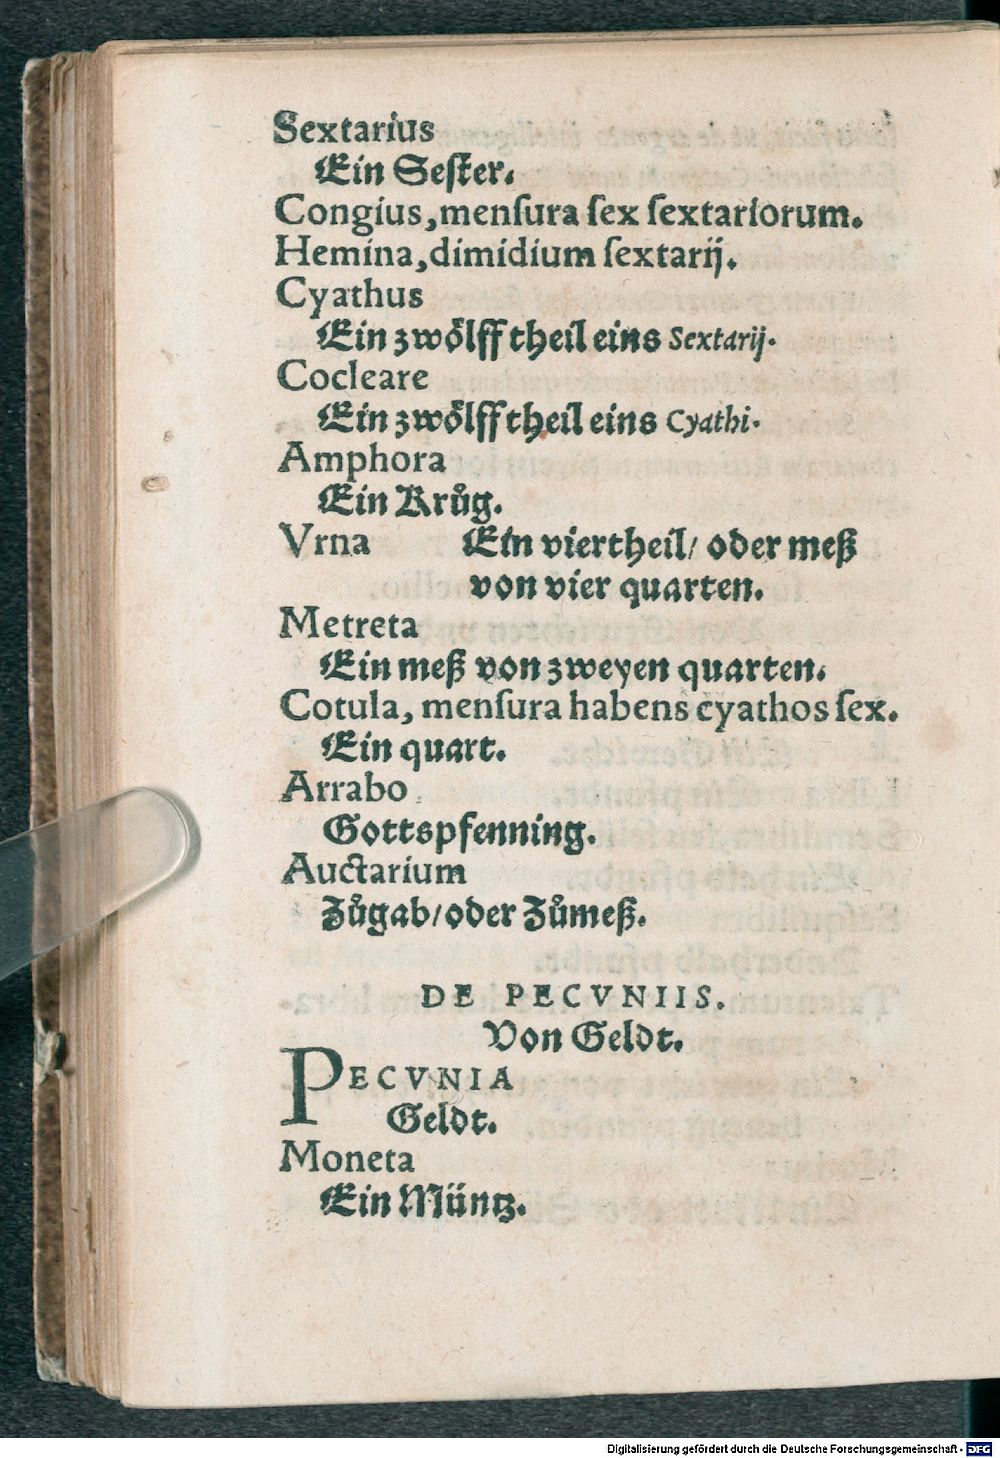 Sextarius
Ein Sester.
Congius, menſura ſex ſextariorum.
Hemina, dimidium ſextarij.
Cyathus
Ein zwoͤlff theil eins Sextarij.
Cocleare
Ein zwoͤlff theil eins Cyathi.
Amphora
Ein Kruͦg.
Vrna Ein viertheil/ oder meß
von vier quarten.
Metreta
Ein meß von zweyen quarten.
Cotula, menſura habens cyathos ſex.
Ein quart.
Arrabo
Gottspfenning.
Auctarium
Zuͦgab/ oder Zuͦmeß.
DE PECVNIIS.
Von Geldt.
PECVNIA
Geldt.
Moneta
Ein Müntz.
Digitalisierung gefördert durch die Deutsche Forschungsgemeinschaft - DFG